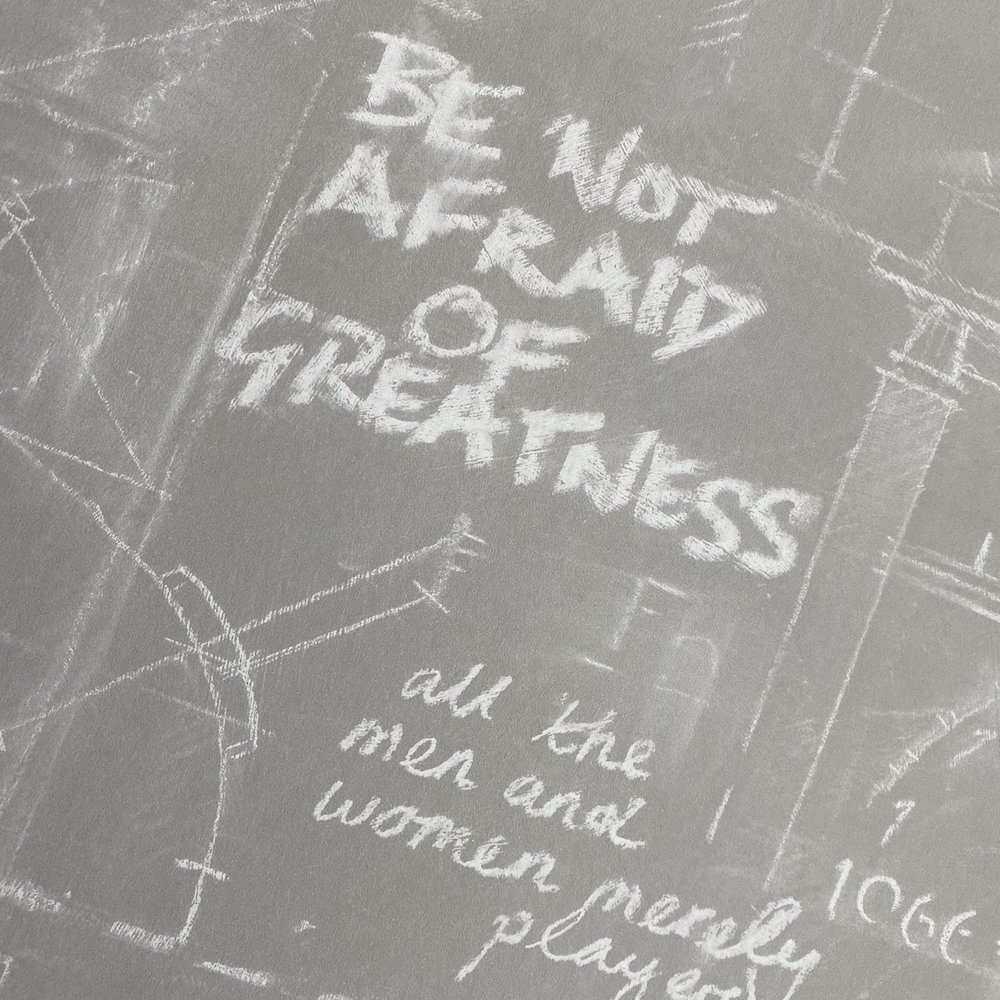 BE NOT
AFRAID
OF
GREATNESS
all the
men and
women merely
players